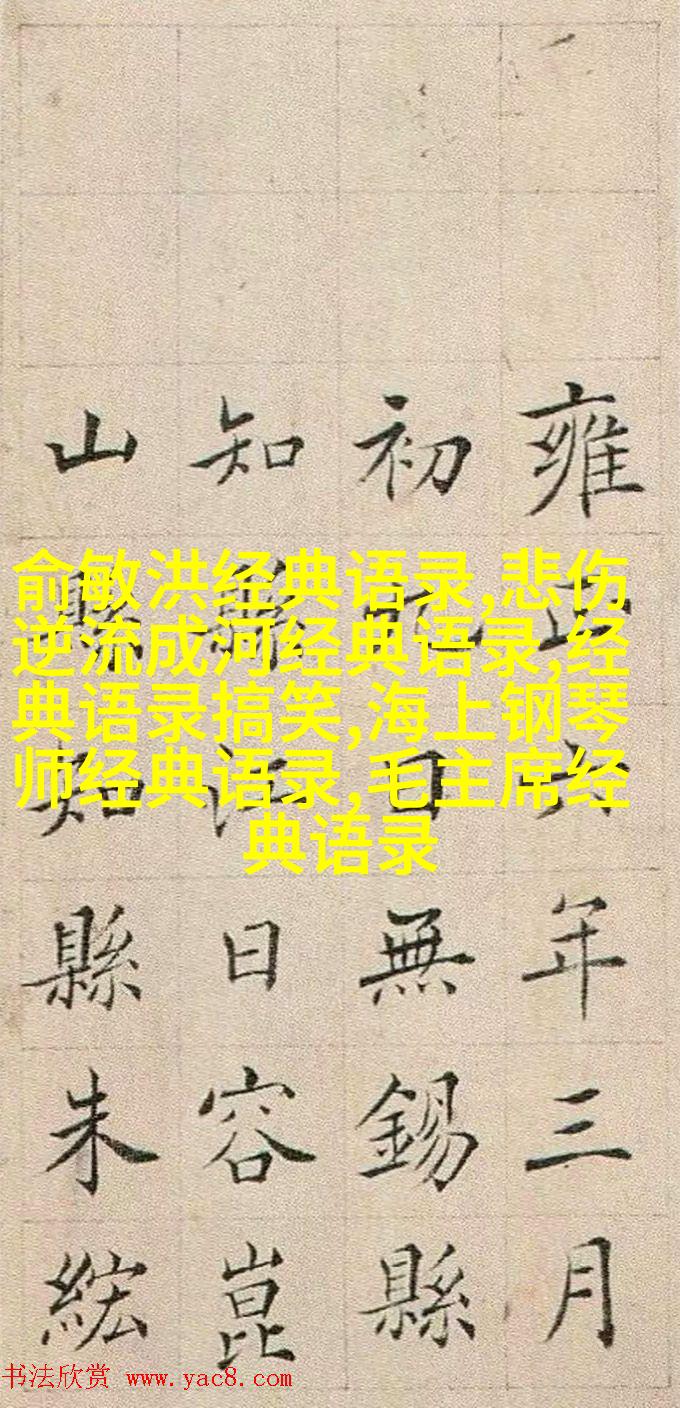 雍正六年三月
初日無錫縣
知縣江日容崑
山縣知縣朱紘
俞敏洪经典语录,悲伤
逆流成河经典语录,经
典语录搞笑,海上钢琴
师经典语录,毛主席经
典语录
书法欣赏 www.yac8.com